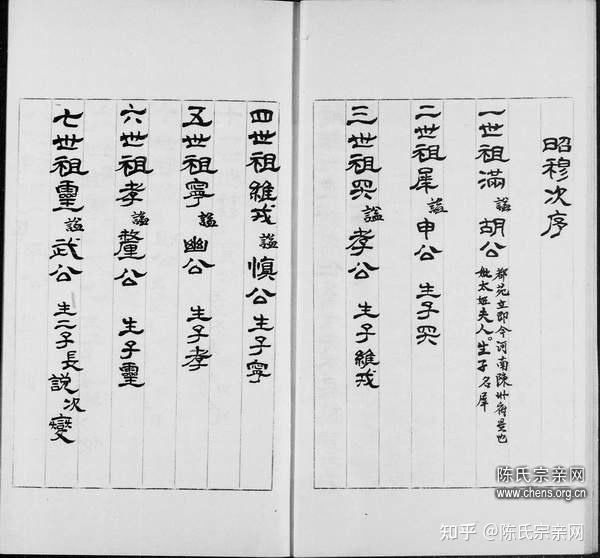 昭穆次序
一世祖滿謚胡公
都苑丘即今河南陳州府是也
妣太姬夫人。生子名犀
二世祖犀謚申公 生子突
三世祖突謚孝公 生子維戎
四世祖維戎謚慎公生子寧
五世祖寧謚幽公 生子孝
六世祖孝謚釐公 生子靈
七世祖靈謚武公 生二子長說次燮
陈氏宗亲网
www.chens.org.cn
知乎 @陈氏宗亲网